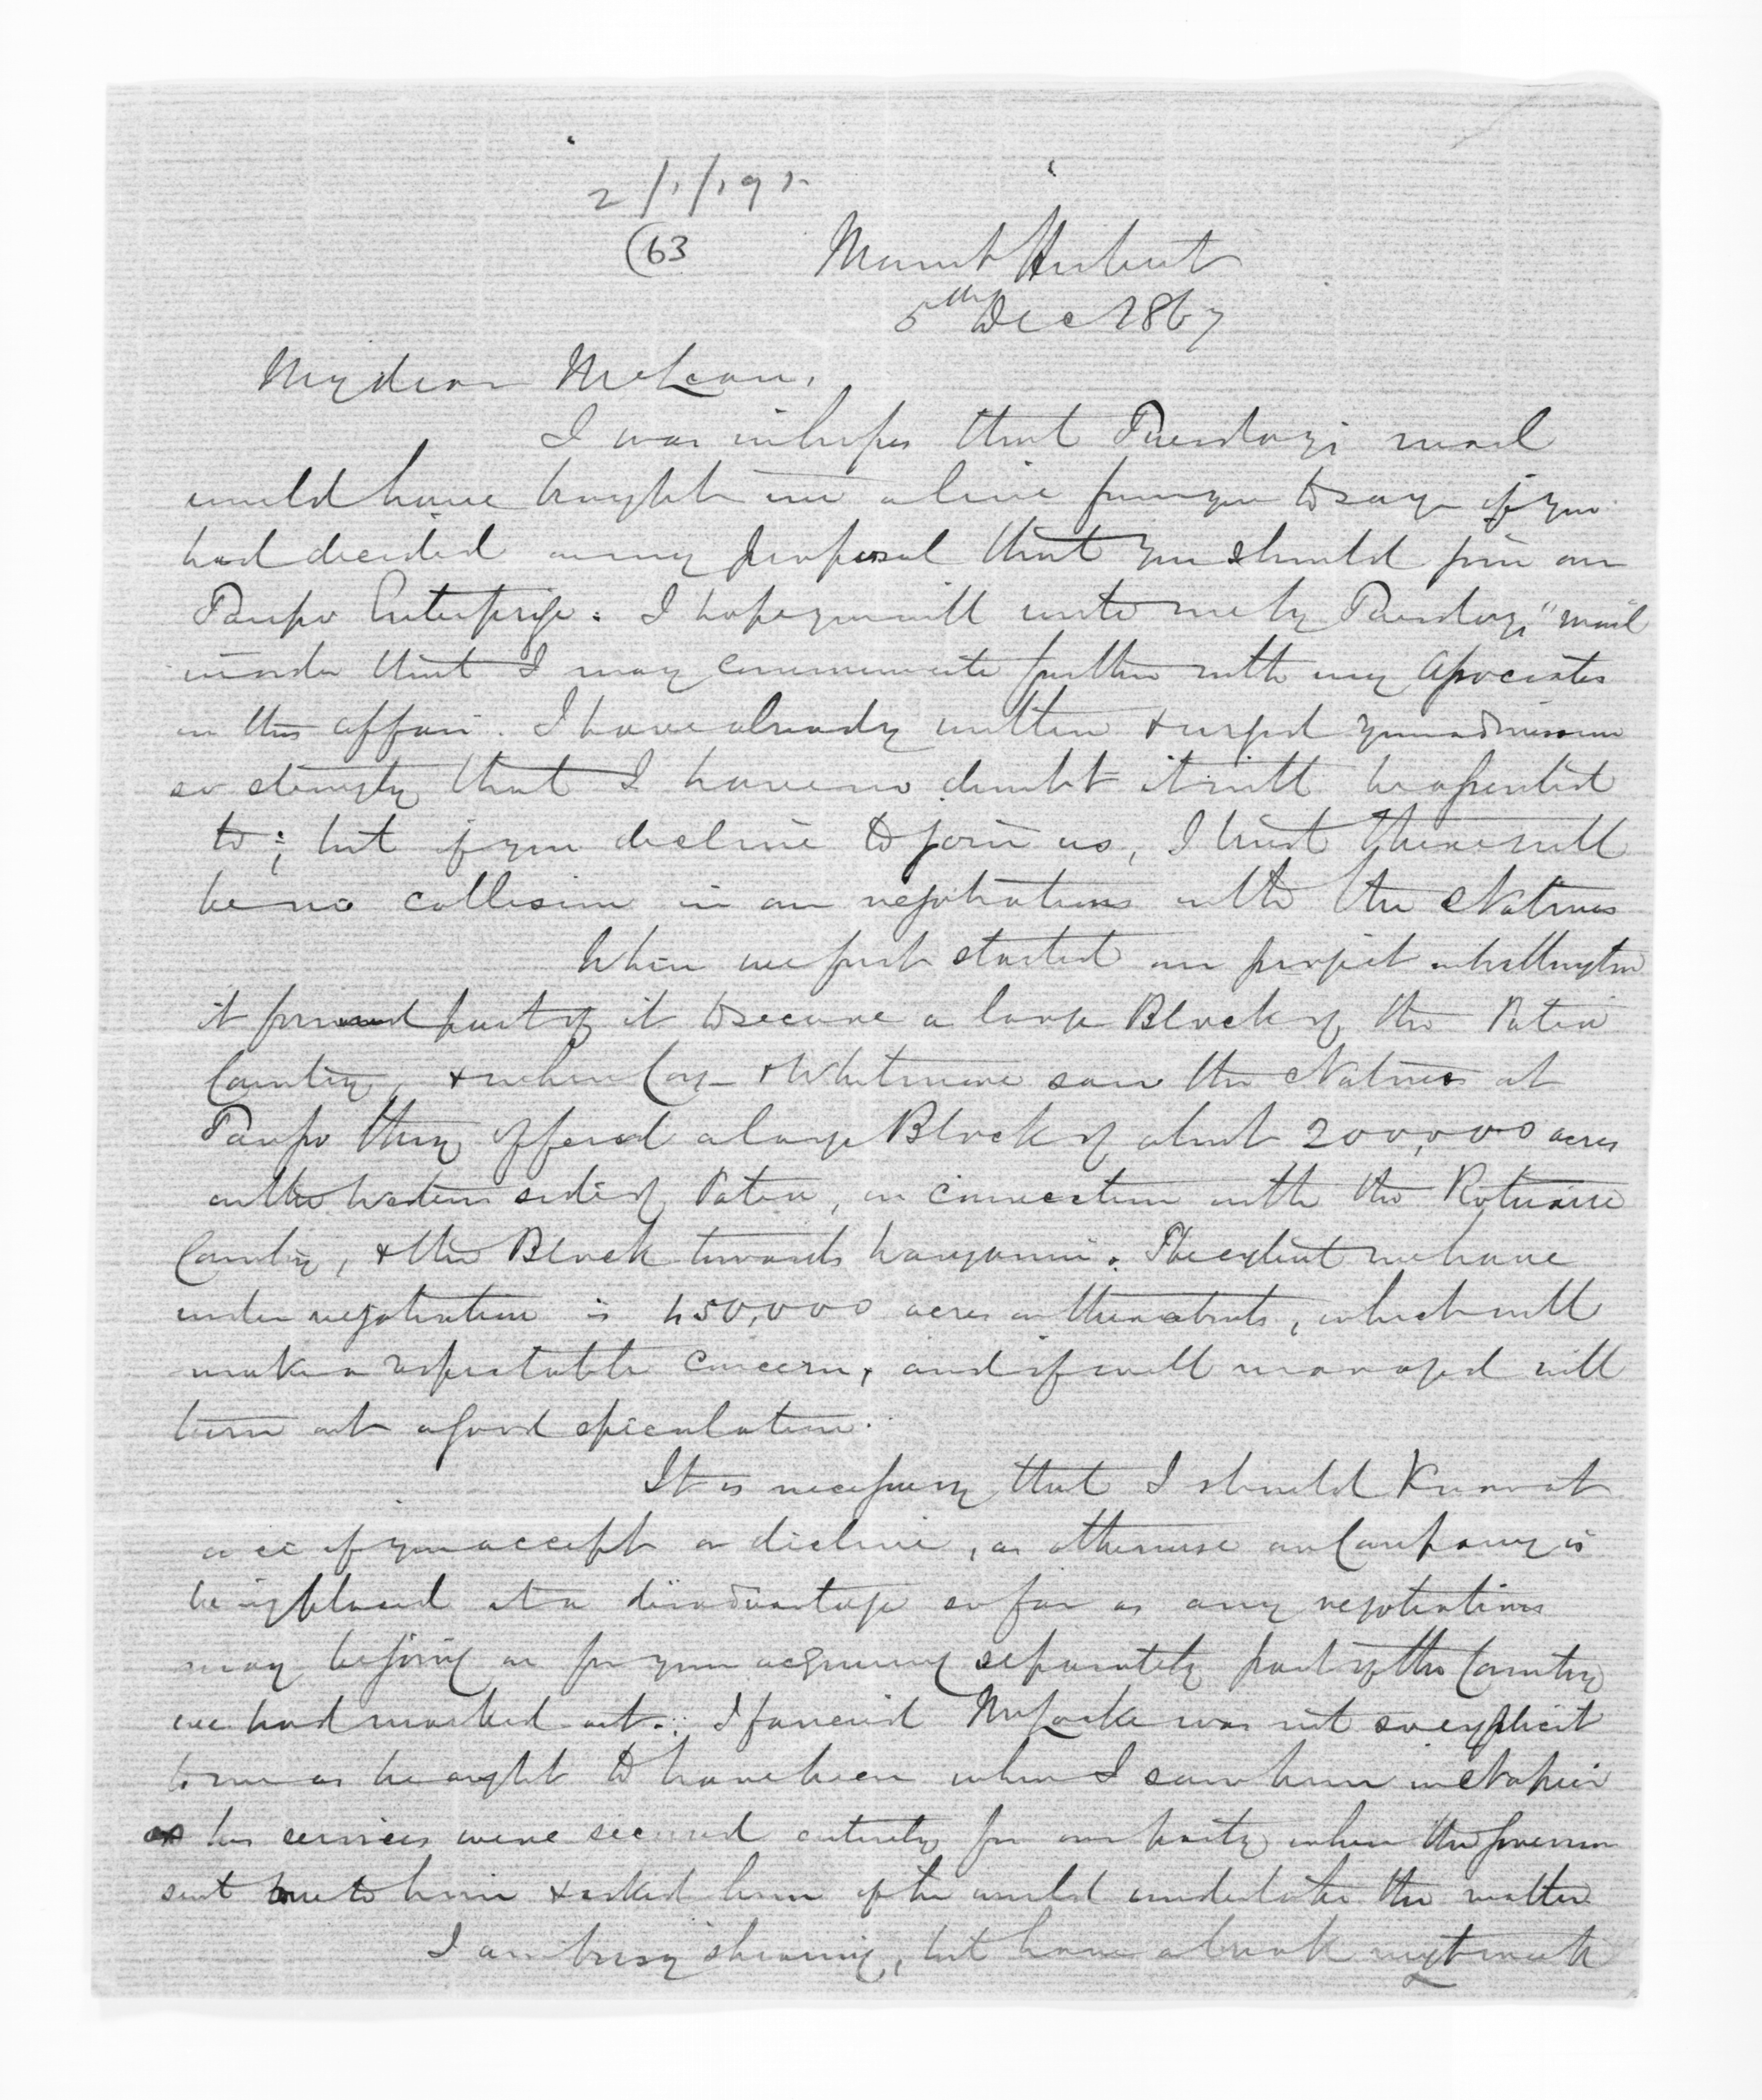 2/1/191
63
Mount Herbert
5th Dec 1867
My dear McLean,
I was in hopes that Tuesday's mail
would have brought me a line from you to say if you
had decided on my proposal that you should join our
Taupo Enterprise: I hope you will write me by Tuesdays" mail
in order that I may communicate further with my Associates
in this affair. I have already written & urged your admission
so strongly that I have no doubt it will be assented
to; but if you decline to join us, I trust there will
be no collision in our negotiations with the Natives
When we first started our project in Wellington
it formed part of it to secure a large Block of the Patea
Country, & when Cox & Whitmore saw the Natives at
Taupo they offered a large Block of about 200,000 acres
on the Western side of Patea, in connection with the
Country, & the Block towards The extent we have
under negotiation is 450,000 acres in thereabouts, which will
make a respectable concern, and if well managed will
turn out a good speculation.
It is necessary that I should Know at
once if you accept or decline, as otherwise our Company is
being placed at a disadvantage so far as any negotiations
may be going on for your acquiring separately part of the Country
we had marked out. I fancied Mr Locke was not so explicit
to me as he ought to have been when I saw him in Napier
as his services were secured entirely for our party when the Governor
sent me to him & asked him if he would undertake the matter
I am busy shearing, but have a break next week